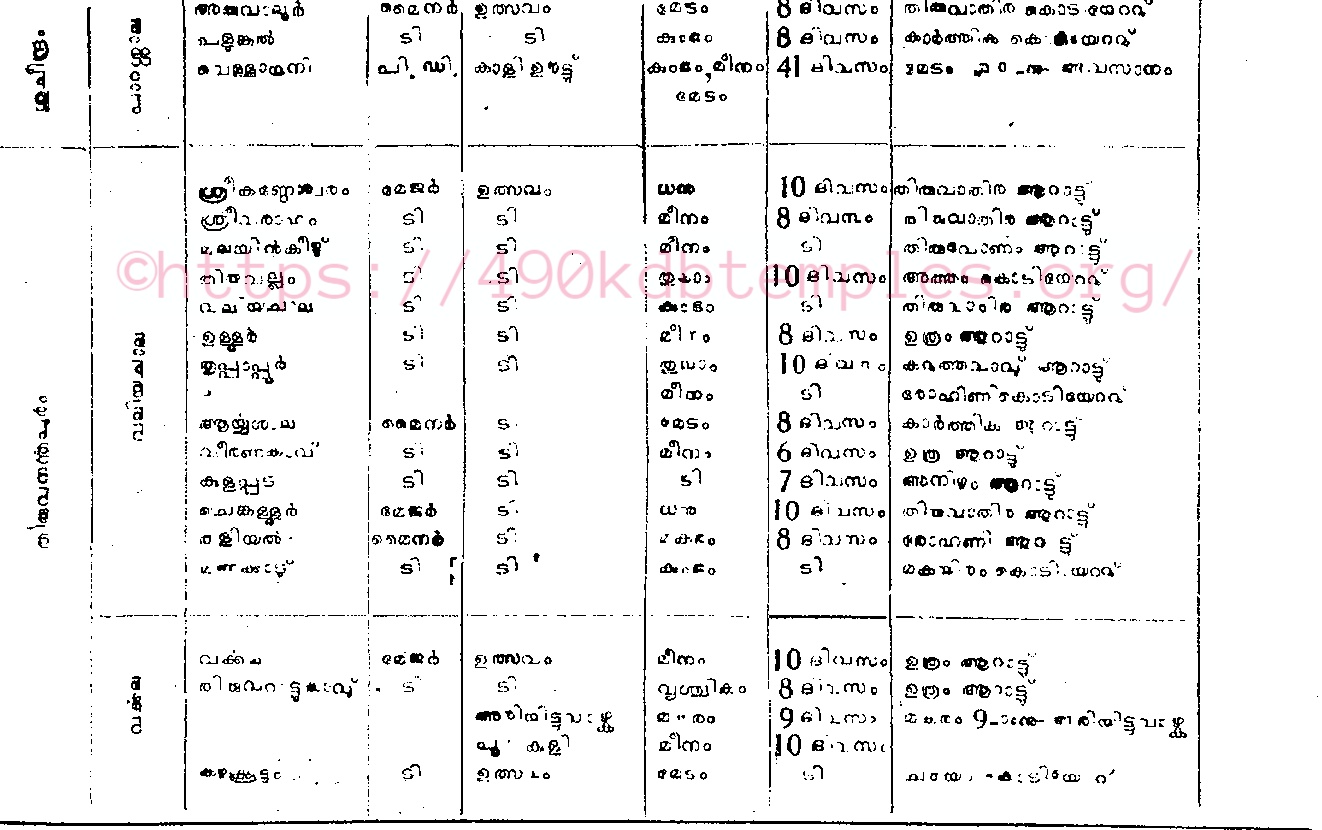 അരുവാലൂർ മൈനർ ഉത്സവം മേടം 8 ദിവസം തിരുവാതിര കൊടിയേററ്
പളുങ്കൽ ടി ടി കുംഭം 8 ദിവസം കാർത്തിക കൊടിയേററ്
വെള്ളായനി പി. ഡി. കാളി ഊട്ട് കുംഭം, മീനം 41 ദിവസം മേടം അവസാനം
മേടം
ശുചീന്ദ്രം
പാറശ്ശാല
ശ്രീകണ്ഠേശ്വരം മേജർ ഉത്സവം ധനു 10 ദിവസം തിരുവാതിര ആറാട്ട്
ശ്രീവരാഹം ടി ടി മീനം 8 ദിവസം തിരുവാതിര ആറാട്ട്
മലയിൻകീഴ് ടി ടി മീനം ടി തിരുവോണം ആറാട്ട്
©https://490kdbtemples.org/
തിരുവല്ലം ടി ടി തുലാം 10 ദിവസം അത്തം കൊടിയേററ്
വലിയചാല ടി ടി കുംഭം ടി തിരുവാതിര ആറാട്ട്
ഉള്ളൂർ ടി ടി മീനം 8 ദിവസം ഉത്രം ആറാട്ട്
തൃപ്പാപ്പൂർ ടി ടി തുലാം 10 ദിവസം കറുത്തവാവ് ആറാട്ട്
മീനം ടി രോഹിണി കൊടിയേററ്
ആയ്യശാല മൈനർ ടി മേടം 8 ദിവസം കാർത്തിക ആറാട്ട്
വീരണകാവ് ടി ടി മീനം 6 ദിവസം ഉത്ര ആറാട്ട്
കുളപ്പട ടി ടി ടി 7 ദിവസം അനിഴം ആറാട്ട്
ചെങ്കള്ളൂർ മേജർ ടി ധനു 10 ദിവസം തിരുവാതിര ആറാട്ട്
തളിയൽ മൈനർ ടി മകരം 8 ദിവസം രോഹണി ആറാട്ട്
മണക്കാട്ട് ടി ടി കുംഭം ടി മകയിരം കൊടിയേററ്
തിരുവനന്തപുരം
വലിയചാല
വക്കല മേജർ ഉത്സവം മീനം 10 ദിവസം ഉത്രം ആറാട്ട്
തിരുവറാട്ടുകാവ് ടി ടി വൃശ്ചികം 8 ദിവസം ഉത്രം ആറാട്ട്
അരിയിട്ടുവാഴ്ച മകരം 9 ദിവസം മകരം 9-ാംനു അരിയിട്ടുവാഴ്ച
കളി മീനം 10 ദിവസം
കഴക്കൂട്ടം ടി ഉത്സവം മേടം ടി ചതയം കൊടിയേററ്
വക്കല